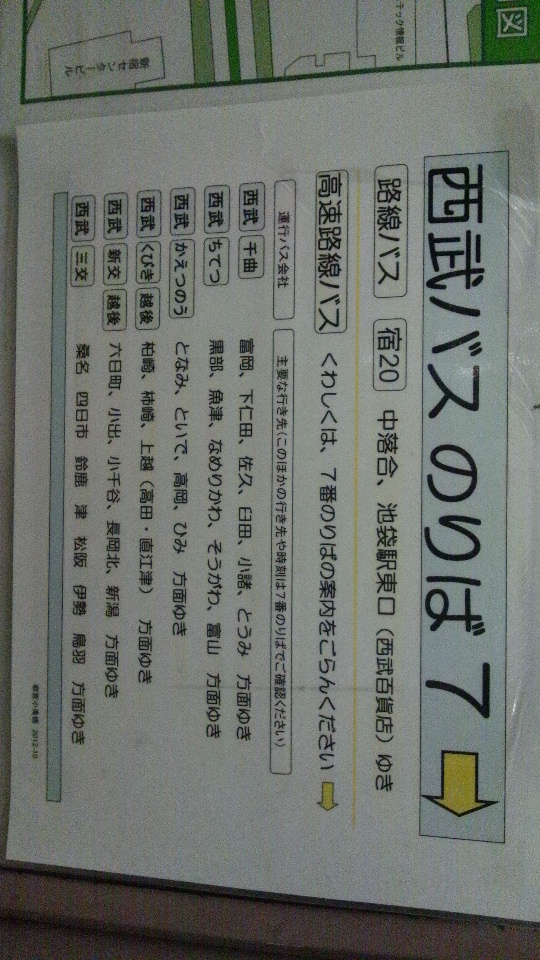 西武バス のりば 7
路線バス 宿20 中落合、池袋駅東口（西武百貨店）ゆき
高速路線バス くわしくは、7番のりばの案内をごらんください
運行バス会社 主要な行き先（このほかの行き先や時刻は7番のりばでご確認ください）
西武 千曲 富岡、下仁田、佐久、臼田、小諸、とうみ 方面ゆき
西武 ちてつ 黒部、魚津、なめりかわ、そうがわ、富山 方面ゆき
西武 かえつのう となみ、といで、高岡、ひみ 方面ゆき
西武 くびき 越後 柏崎、柿崎、上越（高田・直江津） 方面ゆき
西武 新交 越後 六日町、小出、小千谷、長岡北、新潟 方面ゆき
西武 三交 桑名 四日市 鈴鹿 津 松阪 伊勢 鳥羽 方面ゆき
都営小滝橋 2012-10
図
テック情報ビル
新宿センタービル